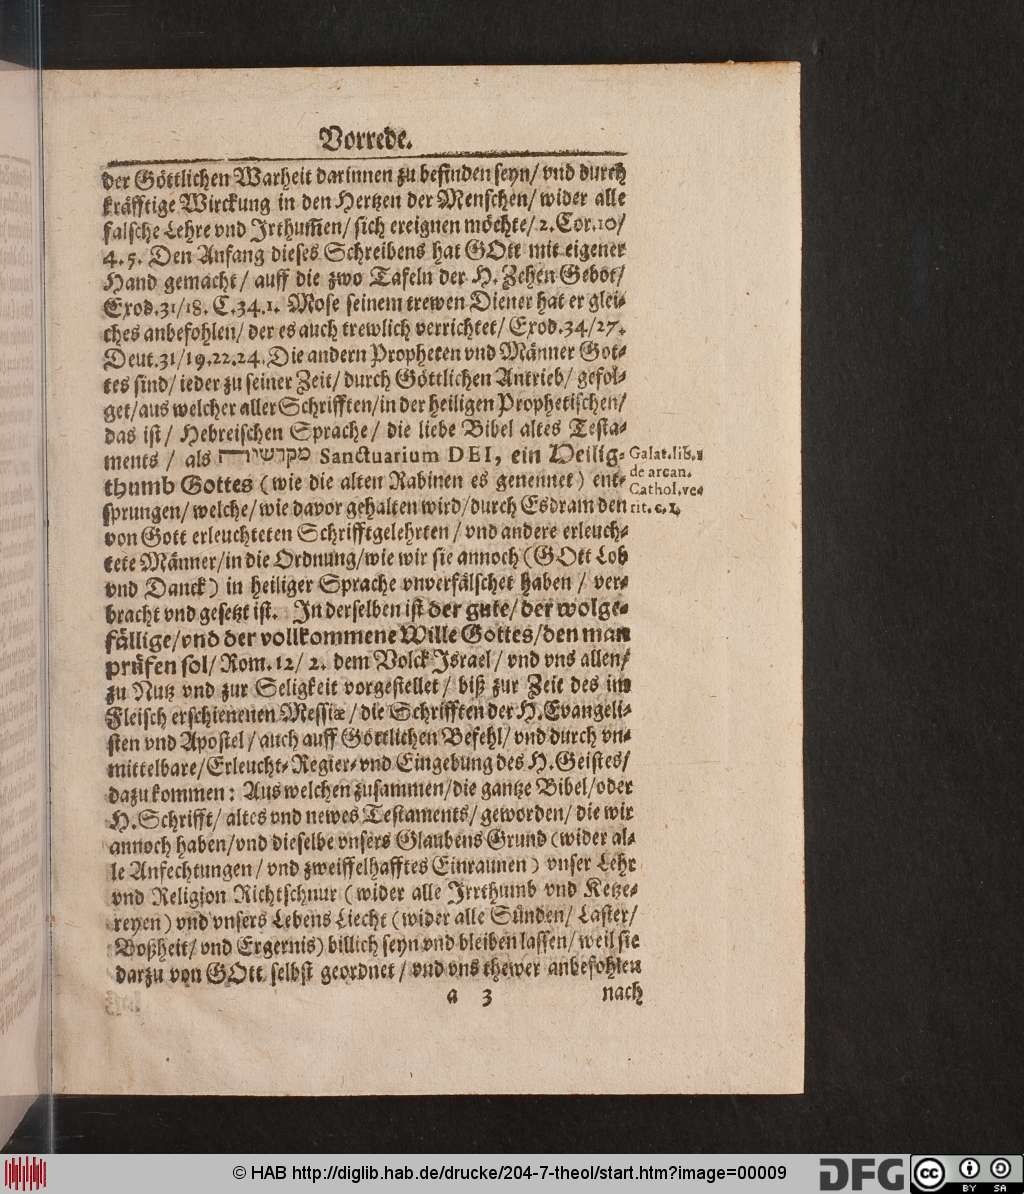 Vorrede.
der Göttlichen Warheit darinnen zu befinden seyn/ vnd durch
kräfftige Wirckung in den Hertzen der Menschen/ wider alle
falsche Lehre vnd Jrthum̃en/ sich ereignen möchte/ 2. Cor. 10/
4. 5. Den Anfang dieses Schreibens hat GOtt mit eigener
Hand gemacht/ auff die zwo Tafeln der H. Zehen Gebot/
Exod. 31/ 18. C. 34. 1. Mose seinem trewen Diener hat er glei-
ches anbefohlen/ der es auch trewlich verrichtet/ Exod. 34/ 27.
Deut. 31/ 19. 22. 24. Die andern Propheten vnd Männer Got-
tes sind/ ieder zu seiner Zeit/ durch Göttlichen Antrieb/ gefol-
get/ aus welcher aller Schrifften/ in der heiligen Prophetischen/
das ist/ Hebreischen Sprache/ die liebe Bibel altes Testa-
ments/ als Sanctuarium DEI, ein Heilig-
thumb Gottes (wie die alten Rabinen es genennet) ent-
sprungen/ welche/ wie davor gehalten wird/ durch Esdram den
von Gott erleuchteten Schrifftgelehrten/ vnd andere erleuch-
tete Männer/ in die Ordnung/ wie wir sie annoch (GOtt Lob
vnd Danck) in heiliger Sprache vnverfälschet haben/ ver-
bracht vnd gesetzt ist. Jn derselben ist der gute/ der wolge-
fällige/ vnd der vollkommene Wille Gottes/ den man
prüfen sol/ Rom. 12/ 2. dem Volck Jsrael/ vnd vns allen/
zu Nutz vnd zur Seligkeit vorgestellet/ biß zur Zeit des im
Fleisch erschienenen Messiæ/ die Schrifften der H. Evangeli-
sten vnd Apostel/ auch auff Göttlichen Befehl/ vnd durch vn-
mittelbare/ Erleucht- Regier- vnd Eingebung des H. Geistes/
dazu kommen: Aus welchen zusammen/ die gantze Bibel/ oder
H. Schrifft/ altes vnd newes Testaments/ geworden/ die wir
annoch haben/ vnd dieselbe vnsers Glaubens Grund (wider al-
le Anfechtungen/ vnd zweiffelhafftes Einraunen) vnser Lehr
vnd Religion Richtschnur (wider alle Jrrthumb vnd Ketze-
reyen) vnd vnsers Lebens Liecht (wider alle Sünden/ Laster/
Boßheit/ vnd Ergernis) billich seyn vnd bleiben lassen/ weil sie
darzu von GOtt selbst geordnet/ vnd vns thewer anbefohlen
a 3 nach
Galat. lib. 1
de arcan.
Cathol. ve-
rit. c. 1.
© HAB http://diglib.hab.de/drucke/204-7-theol/start.htm?image=00009
DFG
cc BY SA